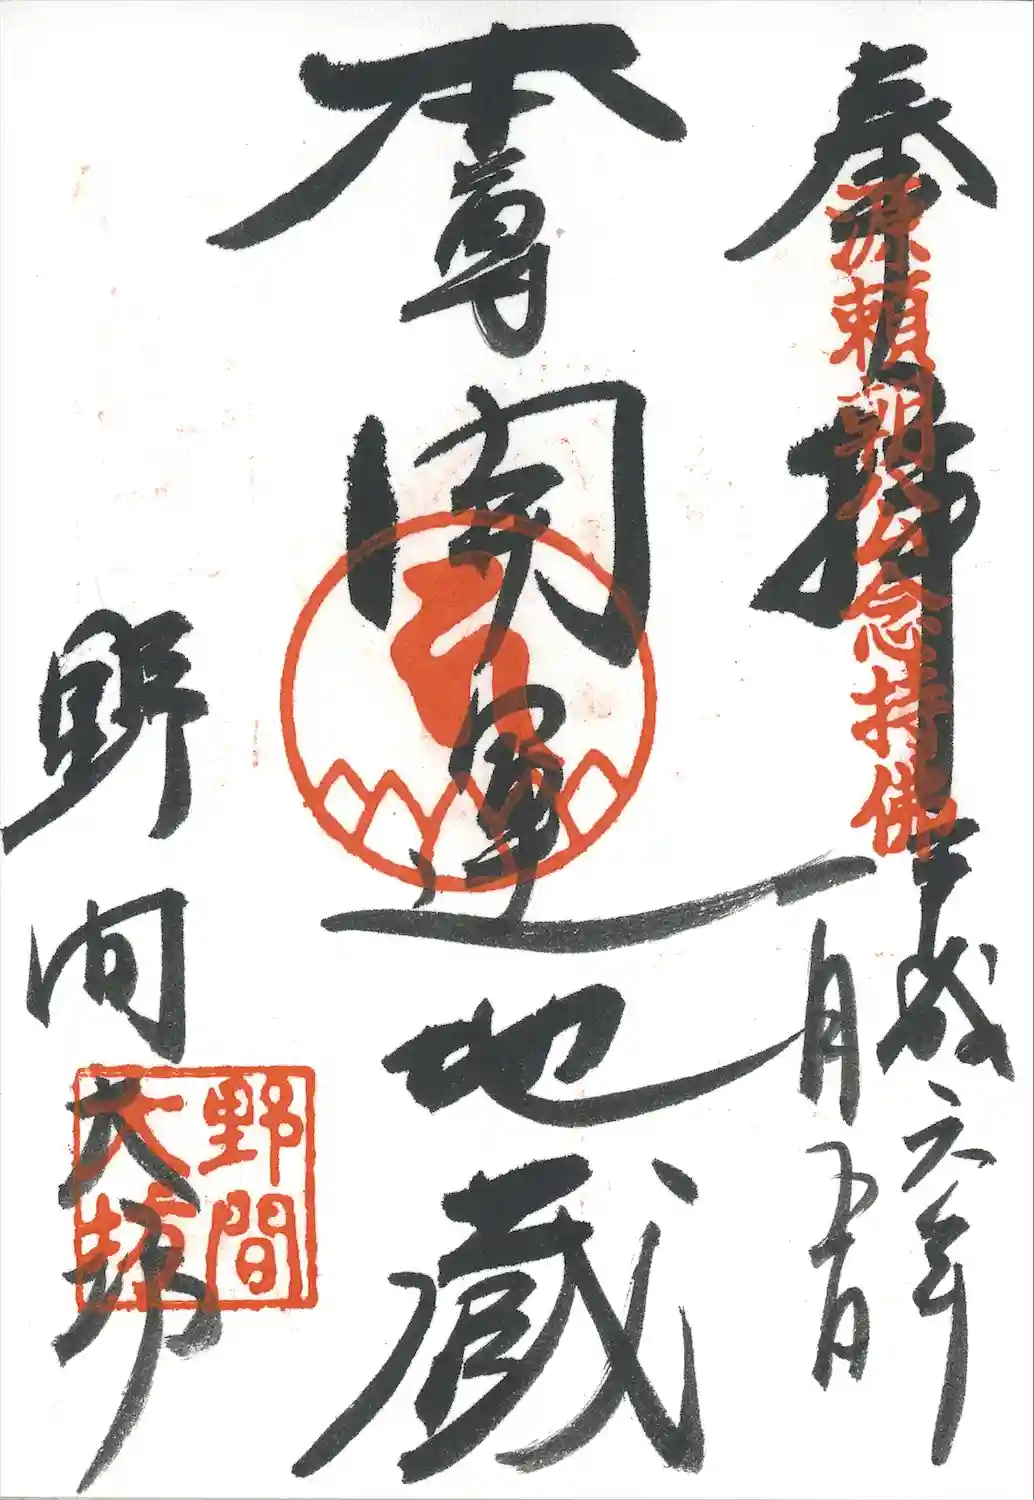 奉拝
源頼朝公念持佛
平成六年
一月五日
本尊
開運地蔵
野間大坊
野間
大坊